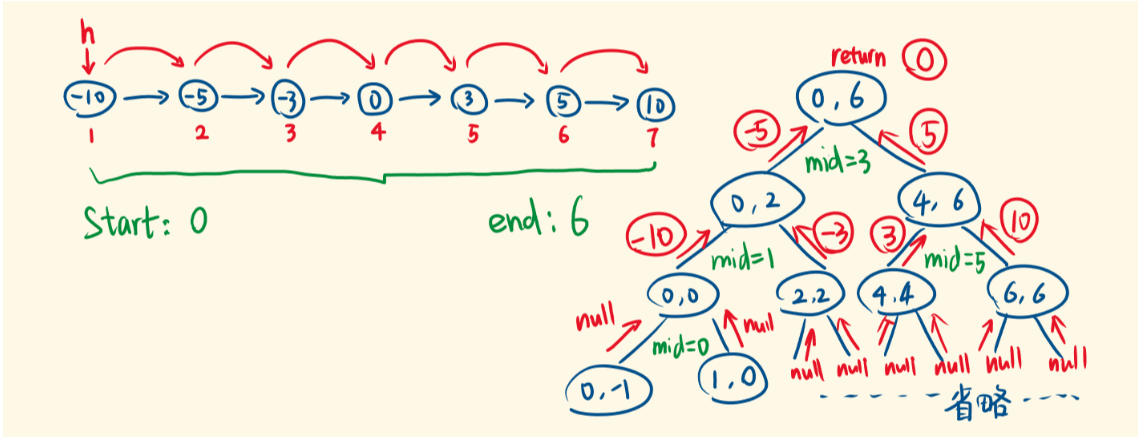 h
-10 -5 -3 0 3 5 10
1 2 3 4 5 6 7
Start: 0 end: 6
return 0
0, 6
-5 mid=3 5
0, 2 4, 6
-10 mid=1 -3 3 mid=5 10
0,0 2,2 4,4 6,6
null mid=0 null
0,-1 1,0 null null null null null null
省略